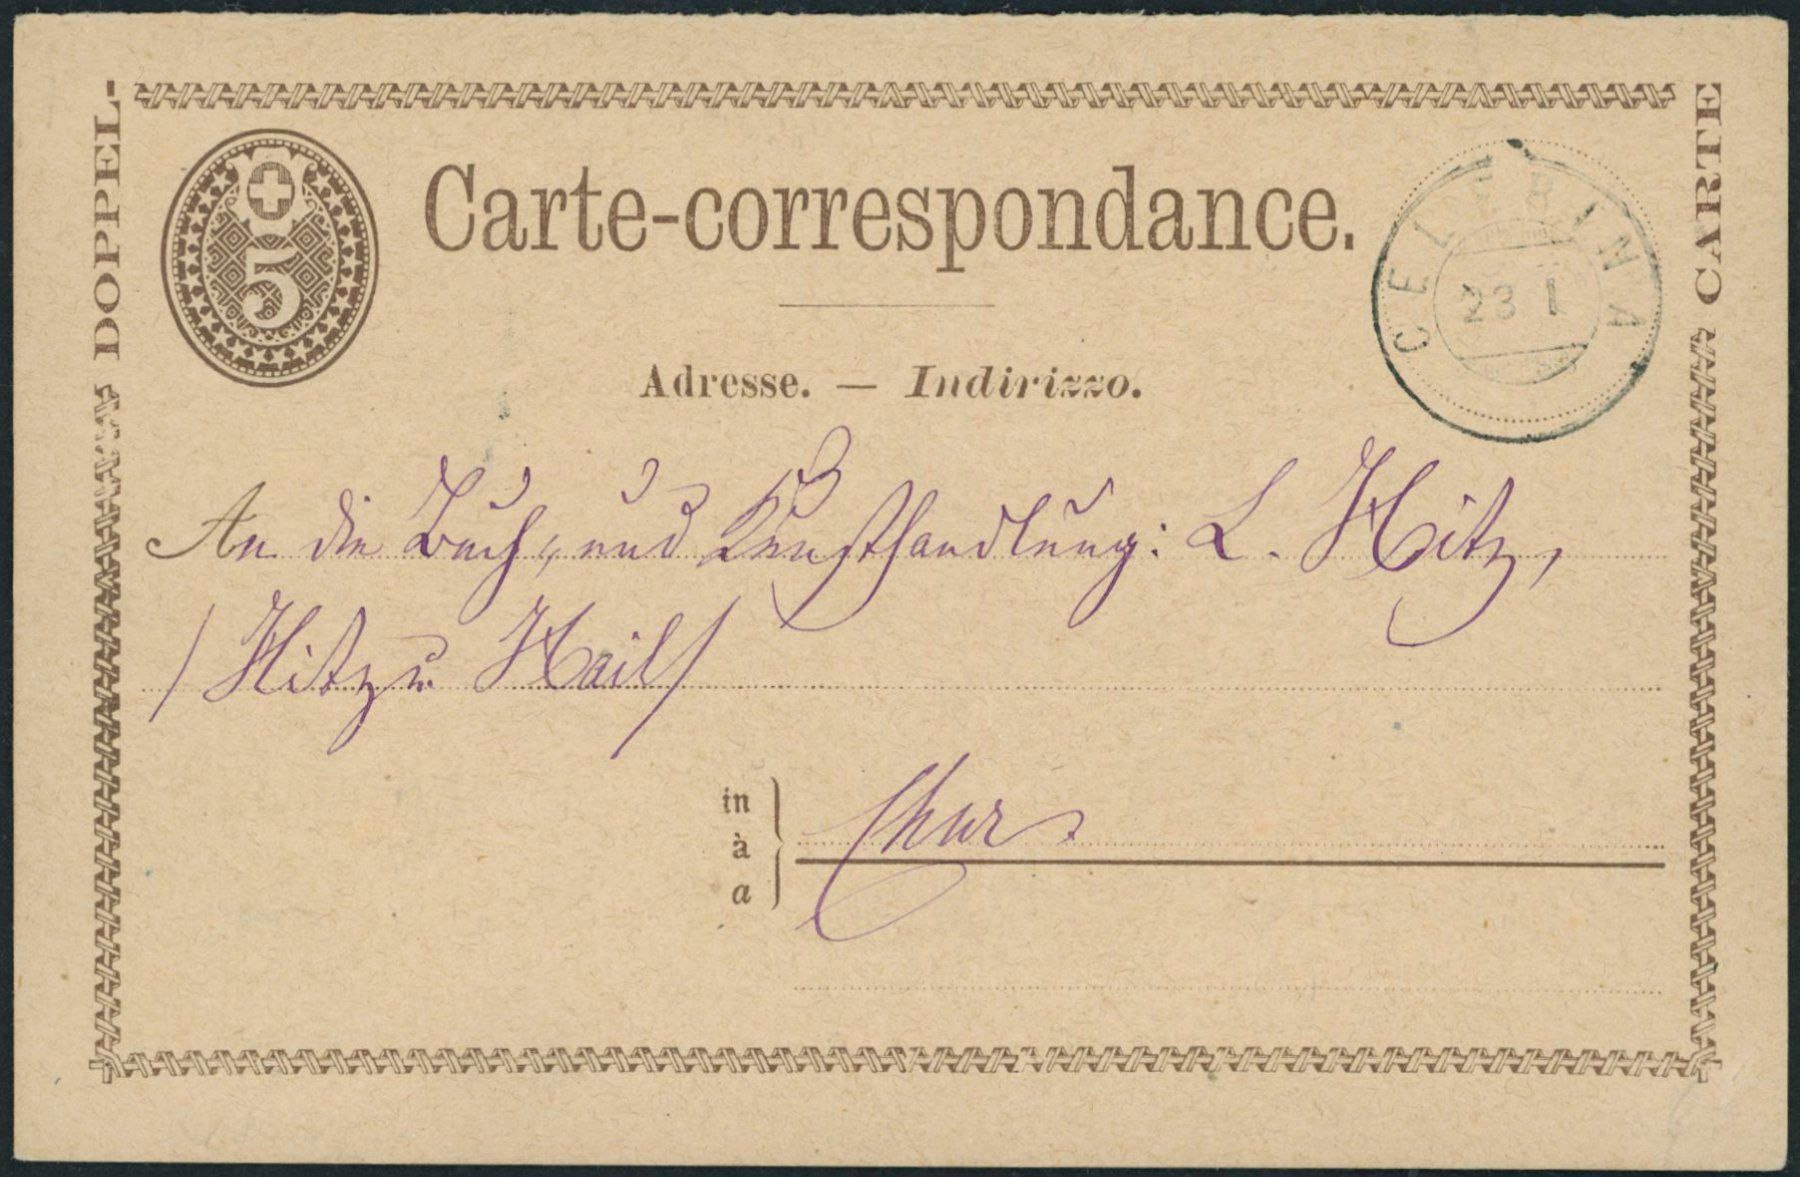 DOPPEL-
CARTE
5
Carte-correspondance.
CELERINA
23 I
Adresse. — Indirizzo.
An die Buch, und Kunsthandlung: L. Hitz,
/ Hitz u. Hail /
in
à
a
Chur